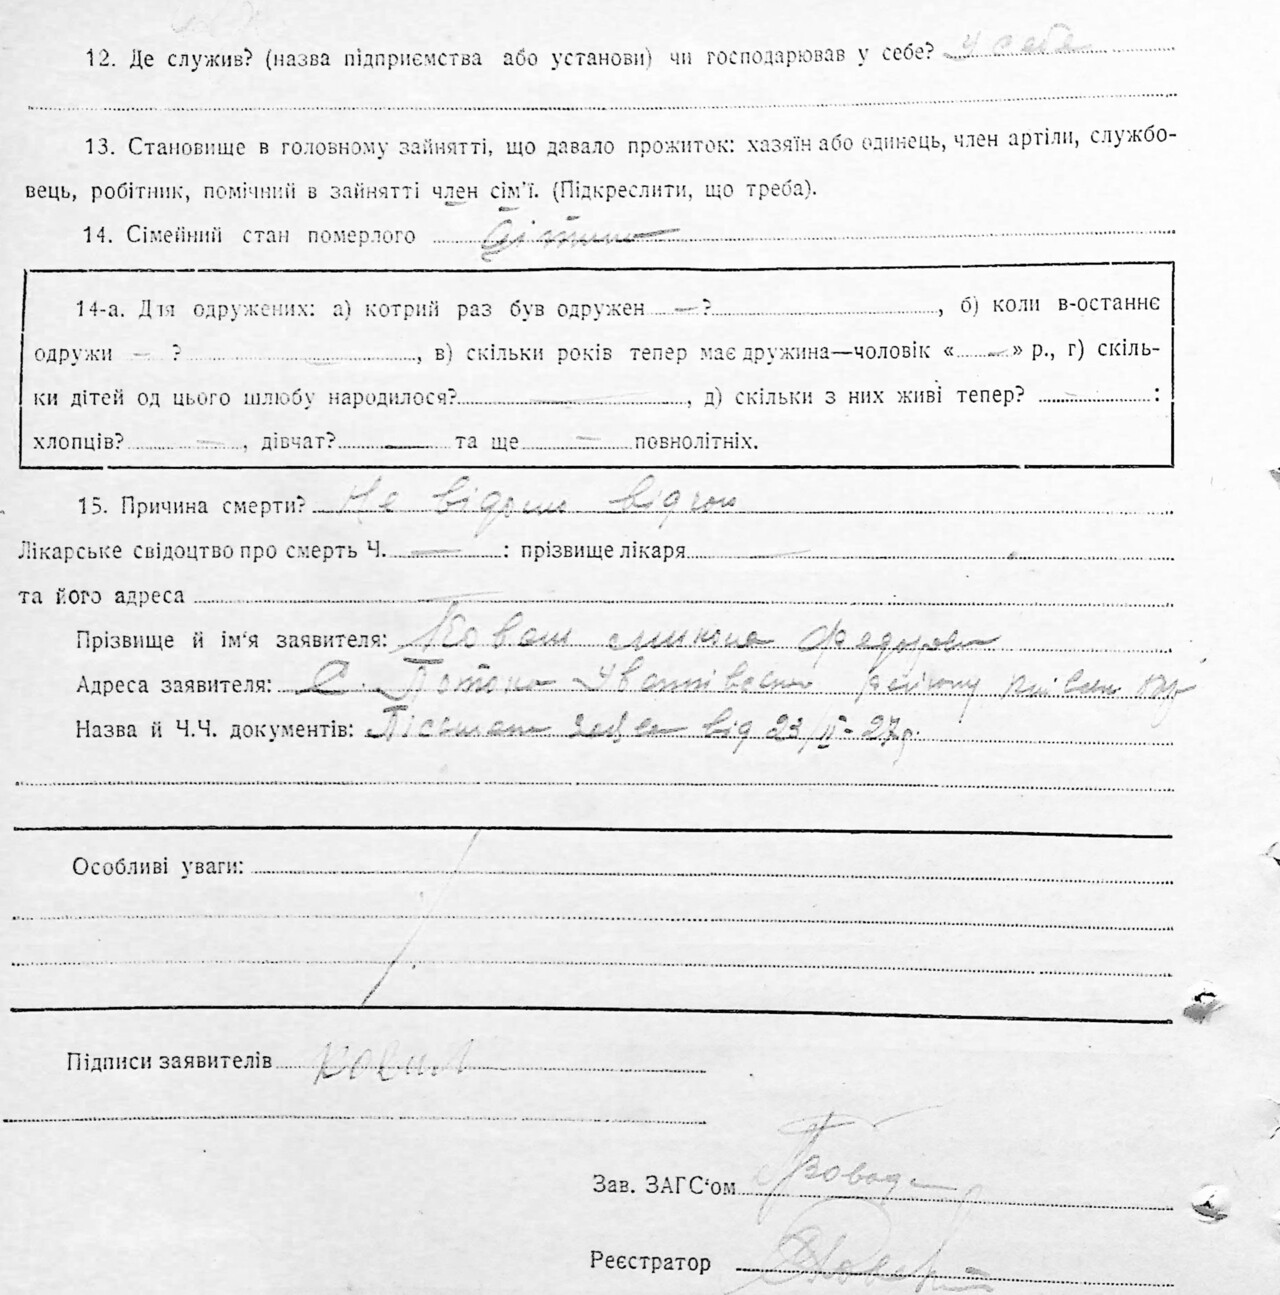 12. Де служив? (назва підприємства або установи) чи господарював у себе? у себе
13. Становище в головному зайнятті, що давало прожиток: хазяїн або одинець, член артіли, службо-
вець, робітник, помічний в зайнятті член сім'ї. (Підкреслити, що треба).
14. Сімейний стан померлого дітина
14-а. Для одружених: а) котрий раз був одружен — ?, б) коли в-останнє
одружи — ?, в) скільки років тепер має дружина—чоловік «—» р., г) скіль-
ки дітей од цього шлюбу народилося? —, д) скільки з них живі тепер? — :
хлопців? —, дівчат? — та ще — повнолітніх.
15. Причина смерти? Не
Лікарське свідоцтво про смерть Ч. — : прізвище лікаря —
та його адреса —
Прізвище й ім'я заявителя: Коваль
Адреса заявителя: С. району
Назва й Ч.Ч. документів: від 23/II-27р.
Особливі уваги:
Підписи заявителів
Зав. ЗАГС'ом
Реєстратор